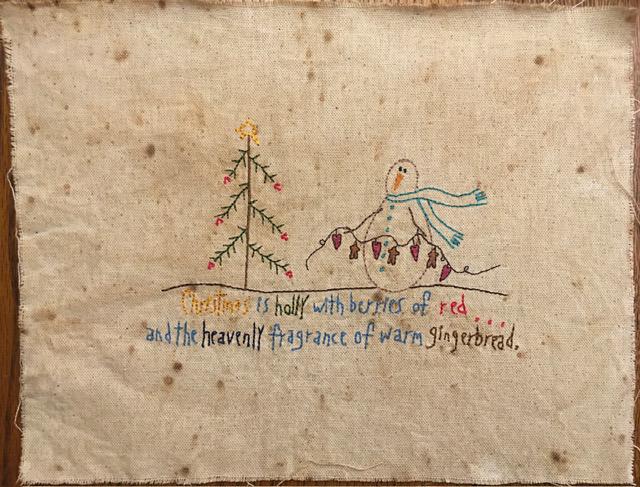 Christmas is holly with berries of red . . .
and the heavenly fragrance of warm gingerbread.